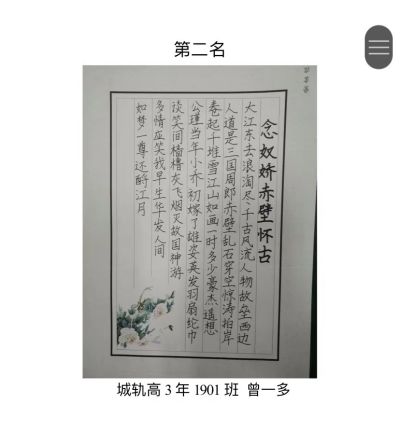 第二名
念奴娇赤壁怀古
大江东去浪淘尽千古风流人物故垒西边
人道是三国周郎赤壁乱石穿空惊涛拍岸
卷起千堆雪江山如画一时多少豪杰遥想
公瑾当年小乔初嫁了雄姿英发羽扇纶巾
谈笑间樯橹灰飞烟灭故国神游
多情应笑我早生华发人间
如梦一尊还酹江月
城轨高 3 年 1901 班 曾一多